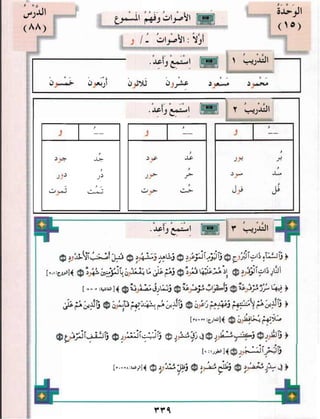 الوحدة
(١٥)
الأصوات وفهم المسموع
الدرس
(٨٨)
أولاً : الأصوات : ـُ / و
التدريب ١ استمع وأعد.
محمود مسعود عشرون ثلاثون أربعون خمسون
التدريب ٢ استمع وأعد.
ـُ و ـُ و ـُ و
بُر بور عُد عود جُد جود
حُر حور دُر دور
فُل فول حُت حوت تُمت تموت
التدريب ٣ استمع وأعد.
﴿ وَالسَّمَاءِ ذَاتِ الْبُرُوجِ وَالْيَوْمِ الْمَوْعُودِ وَشَاهِدٍ وَمَشْهُودٍ قُتِلَ أَصْحَابُ الْأُخْدُودِ
النَّارِ ذَاتِ الْوَقُودِ إِذْ هُمْ عَلَيْهَا قُعُودٌ وَهُمْ عَلَى مَا يَفْعَلُونَ بِالْمُؤْمِنِينَ شُهُودٌ ﴾ [البروج
﴿ فِيهَا سُرُرٌ مَرْفُوعَةٌ وَأَكْوَابٌ مَوْضُوعَةٌ وَنَمَارِقُ مَصْفُوفَةٌ ﴾ [الغاشية
﴿ وَالَّذِينَ هُمْ لِأَمَانَاتِهِمْ وَعَهْدِهِمْ رَاعُونَ وَالَّذِينَ هُمْ بِشَهَادَاتِهِمْ قَائِمُونَ وَالَّذِينَ هُمْ عَلَى
صَلَاتِهِمْ يُحَافِظُونَ ﴾ [المعارج
﴿ وَالطُّورِ وَكِتَابٍ مَسْطُورٍ فِي رَقٍّ مَنْشُورٍ وَالْبَيْتِ الْمَعْمُورِ وَالسَّقْفِ الْمَرْفُوعِ
وَالْبَحْرِ الْمَسْجُورِ ﴾ [الطور
﴿ فِي سِدْرٍ مَخْضُودٍ وَطَلْحٍ مَنْضُودٍ وَظِلٍّ مَمْدُودٍ ﴾
٣٣٩